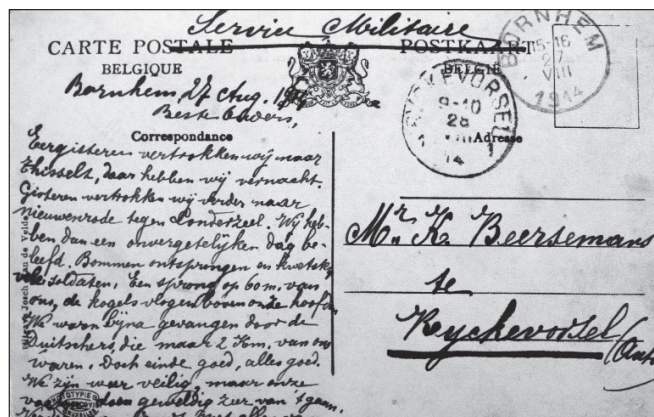 Service Militaire
CARTE POSTALE
BELGIQUE
POSTKAART
BELGIË
BORNHEM
15-16
27
VIII
1914
RYCKEVORSEL
9-10
28
VIII
14
Bornhem, 27 Aug. 1914
Beste Ouders,
Correspondance
Adresse
Eergisteren vertrokken wij naar
Thisselt, daar hebben wij vernacht.
Gisteren vertrokken wij verder naar
Nieuwenrode tegen Londerzeel. Wij heb-
ben dan een onvergetelijken dag be-
leefd. Bommen ontsprongen en kwetsten
vele soldaten. Een sprong op 60 m. van
ons, de kogels vlogen boven onze hoofden
We waren bijna gevangen door de
Duitschers, die maar 2 Km. van ons
waren. Doch einde goed, alles goed.
We zijn weer veilig, maar onze
voeten doen geweldig zeer van 't gaan.
Mr. K. Beersemans
te
Ryckevorsel
(Ant